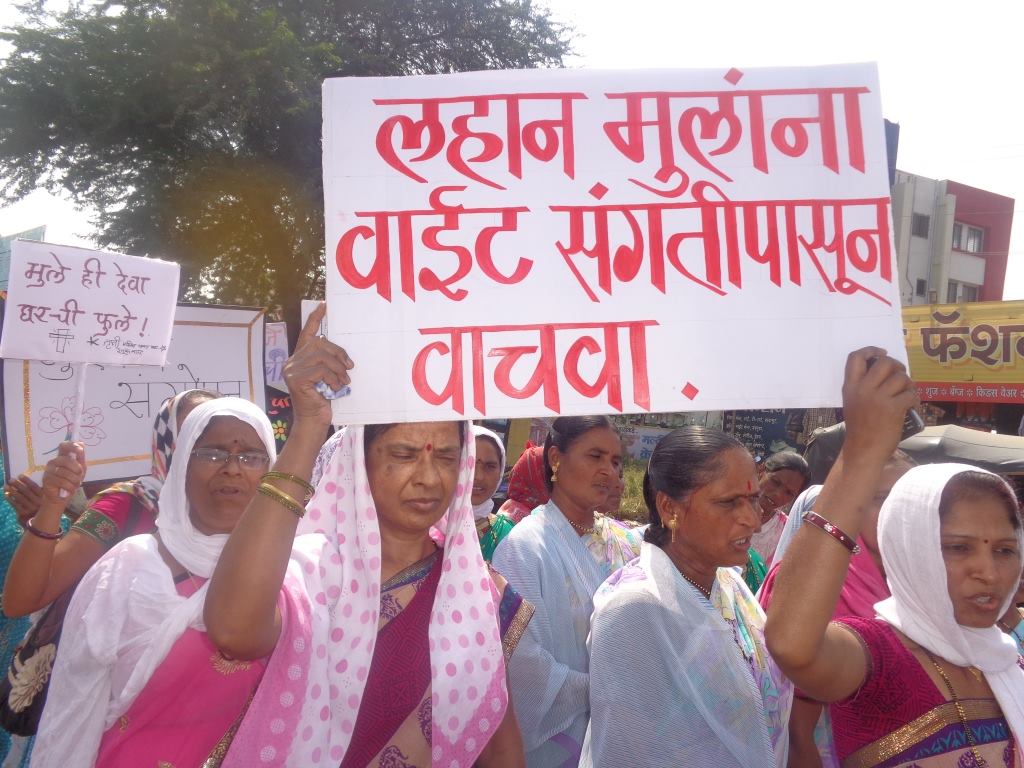 लहान मुलांना
वाईट संगतीपासून
वाचवा.
मुले ही देवा
घरची फुले!
फॅशन
शूज * बॅग्ज * किड्स वेअर